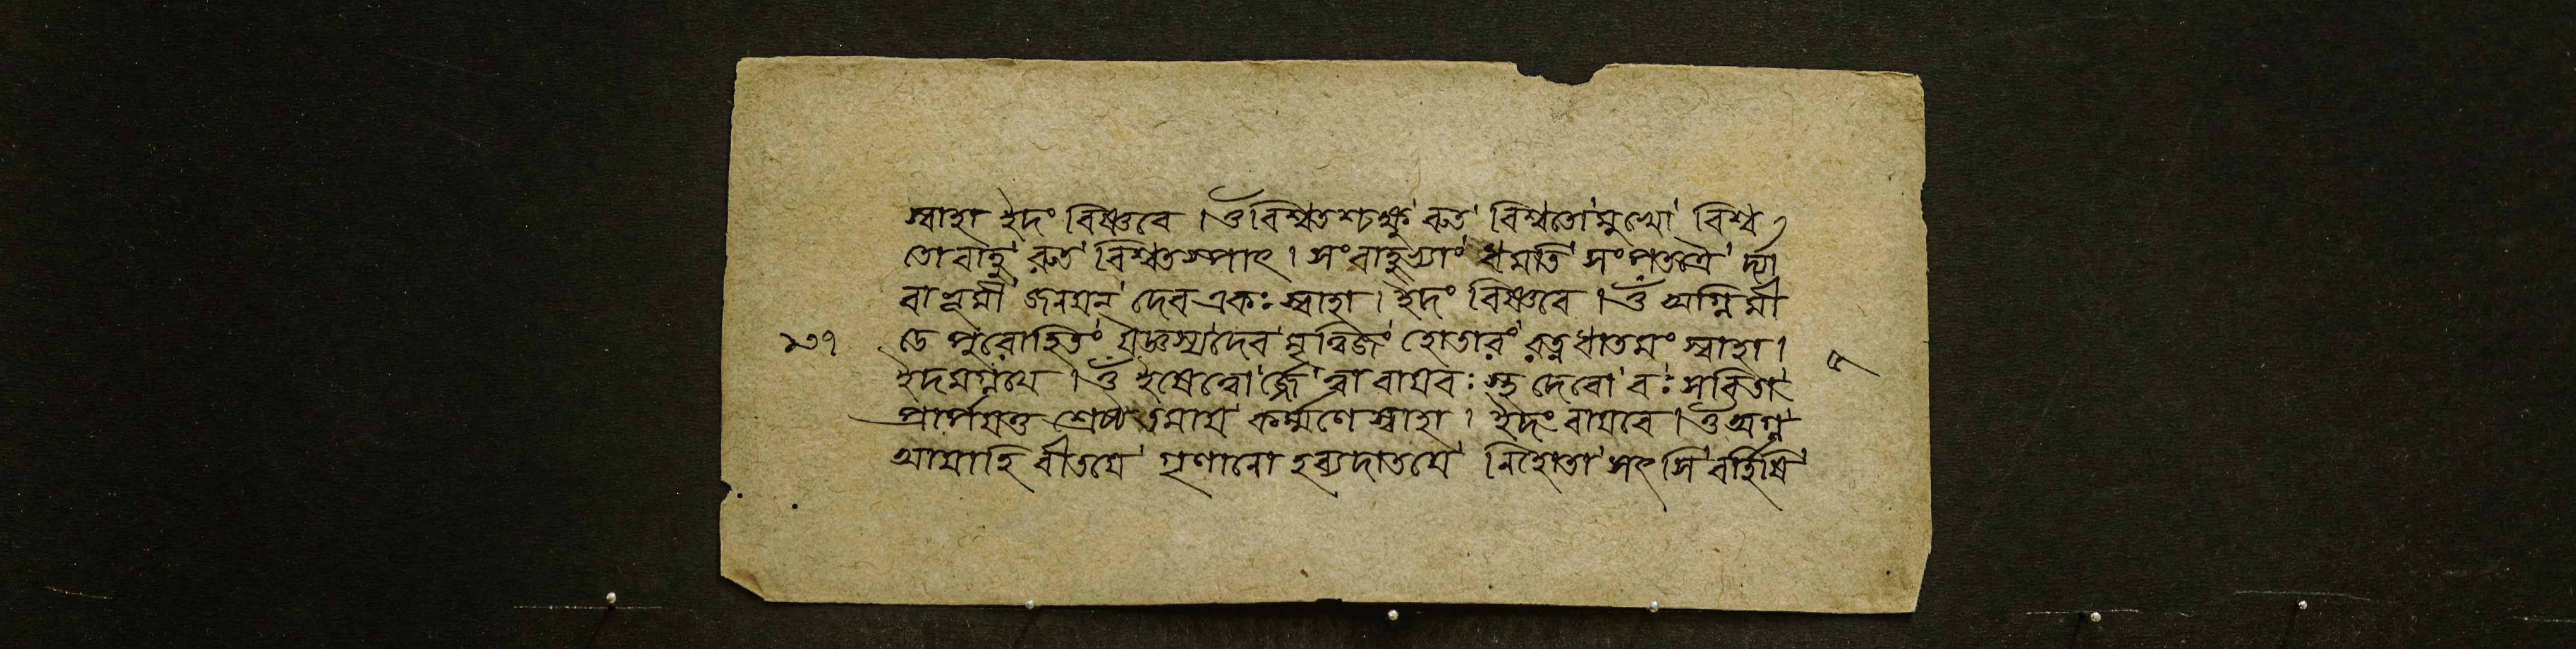 স্বাহা ইদং বিষ্ণবে । ওঁ বিশ্বতশ্চক্ষু রুত বিশ্বতো মুখো বিশ্ব
তো বাহু রুত বিশ্বতস্পাৎ । সং বাহুভ্যাং ধমতি সং পতত্রৈ র্দ্যা
বা ভূমী জনয়ন্ দেব একঃ স্বাহা । ইদং বিষ্ণবে । ওঁ অগ্নিমী
ডে পুরোহিতং যজ্ঞস্য দেব মৃত্বিজং হোতারং রত্নধাতমং স্বাহা ।
ইদমগ্নয়ে । ওঁ ইষেত্বো র্জ্জে ত্বা বায়বঃ স্থ দেবো বঃ সবিতা
প্রার্পয়তু শ্রেষ্ঠতমায় কর্ম্মণে স্বাহা । ইদং বায়বে । ওঁ অগ্ন
আয়াহি বীতয়ে গৃণানো হব্যদাতয়ে নিহোতা সৎসি বর্হিষি